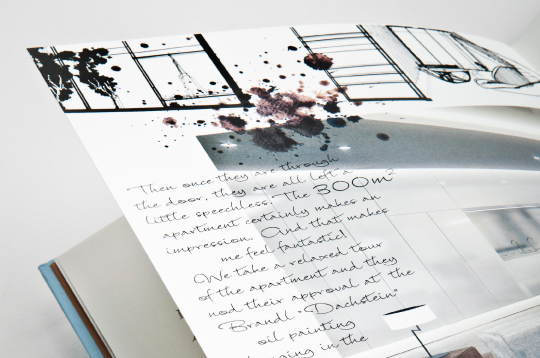 Then once they are through
the door, they are all left a
little speechless. The 300m²
apartment certainly makes an
impression. And that makes
me feel fantastic!
We take a relaxed tour
of the apartment and they
nod their approval at the
Brandl "Dachstein"
oil painting
hanging in the